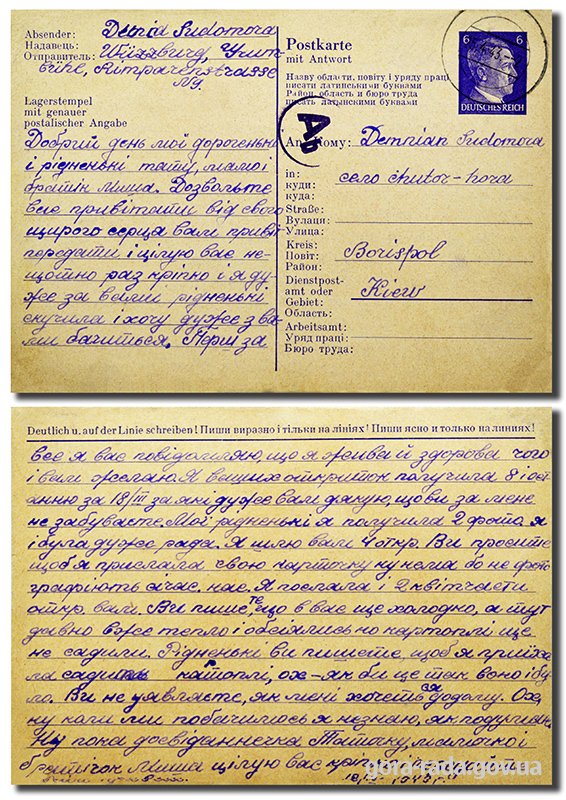 Absender:
Надавець:
Отправитель:
Demid Sudomora
Würzburg, Zum-
Lagerstempel
mit genauer
postalischer Angabe
Добрий день мої дорогенькі
і рідненькі тату, мамо і
братік Миша. Дозвольте
все привітати від свого
щирого серця вам привіт
передати і цілую вас не-
щотно раз кріпко і я ду-
же за вами рідненькі
скучила і хочу дуже з ва-
ми бачиться. Перш за
Postkarte
mit Antwort
Назву области, повіту і уряду праці
писати латинськими буквами
Район, область и бюро труда
писать латынскими буквами
6 6
DEUTSCHES REICH
Ab
An Кому: Demnian Sudomora
in:
куди:
куда:
село Chutor-hora
Straße:
Вулаця:
Улица:
Kreis:
Повіт:
Район:
Borispol
Dienstpost-
amt oder
Gebiet:
Область:
Kiew
Arbeitsamt:
Уряд праці:
Бюро труда:
Deutlich u. auf der Linie schreiben! Пиши виразно і тільки на лініях! Пиши ясно и только на линиях!
все я вас повідомляю, що я жива й здорова чого
і вам желаю. Я ваших откриток получила 8 і ост
анню за 18/III за які дуже вам дякую, що ви за мене
не забуваєте. Мої рідненькі я получила 2 фота я
і була дуже рада. Я шлю вам 4 откр. Ви просите
щоб я прислала свою карточку ну нема бо не фото
графіють січас нас. Я послала і 2 квітчасті
откр. вам. Ви пишете, що в вас ще холодно, а тут
давно вже тепло і обсіялись но картоплі ще
не садили. Рідненькі ви пишете, щоб я приїха
ла садить картоплі, ох-як би це так воно і бу
ло. Ви не уявляєте, як мені хочеться додому. Ох,
ну коли ми побачимось я незнаю, як подумаю.
Ну пока досвіданнєчка Таточку, мамочко і
братічок Миша цілую вас кріпко
gora-rada.gov.ua